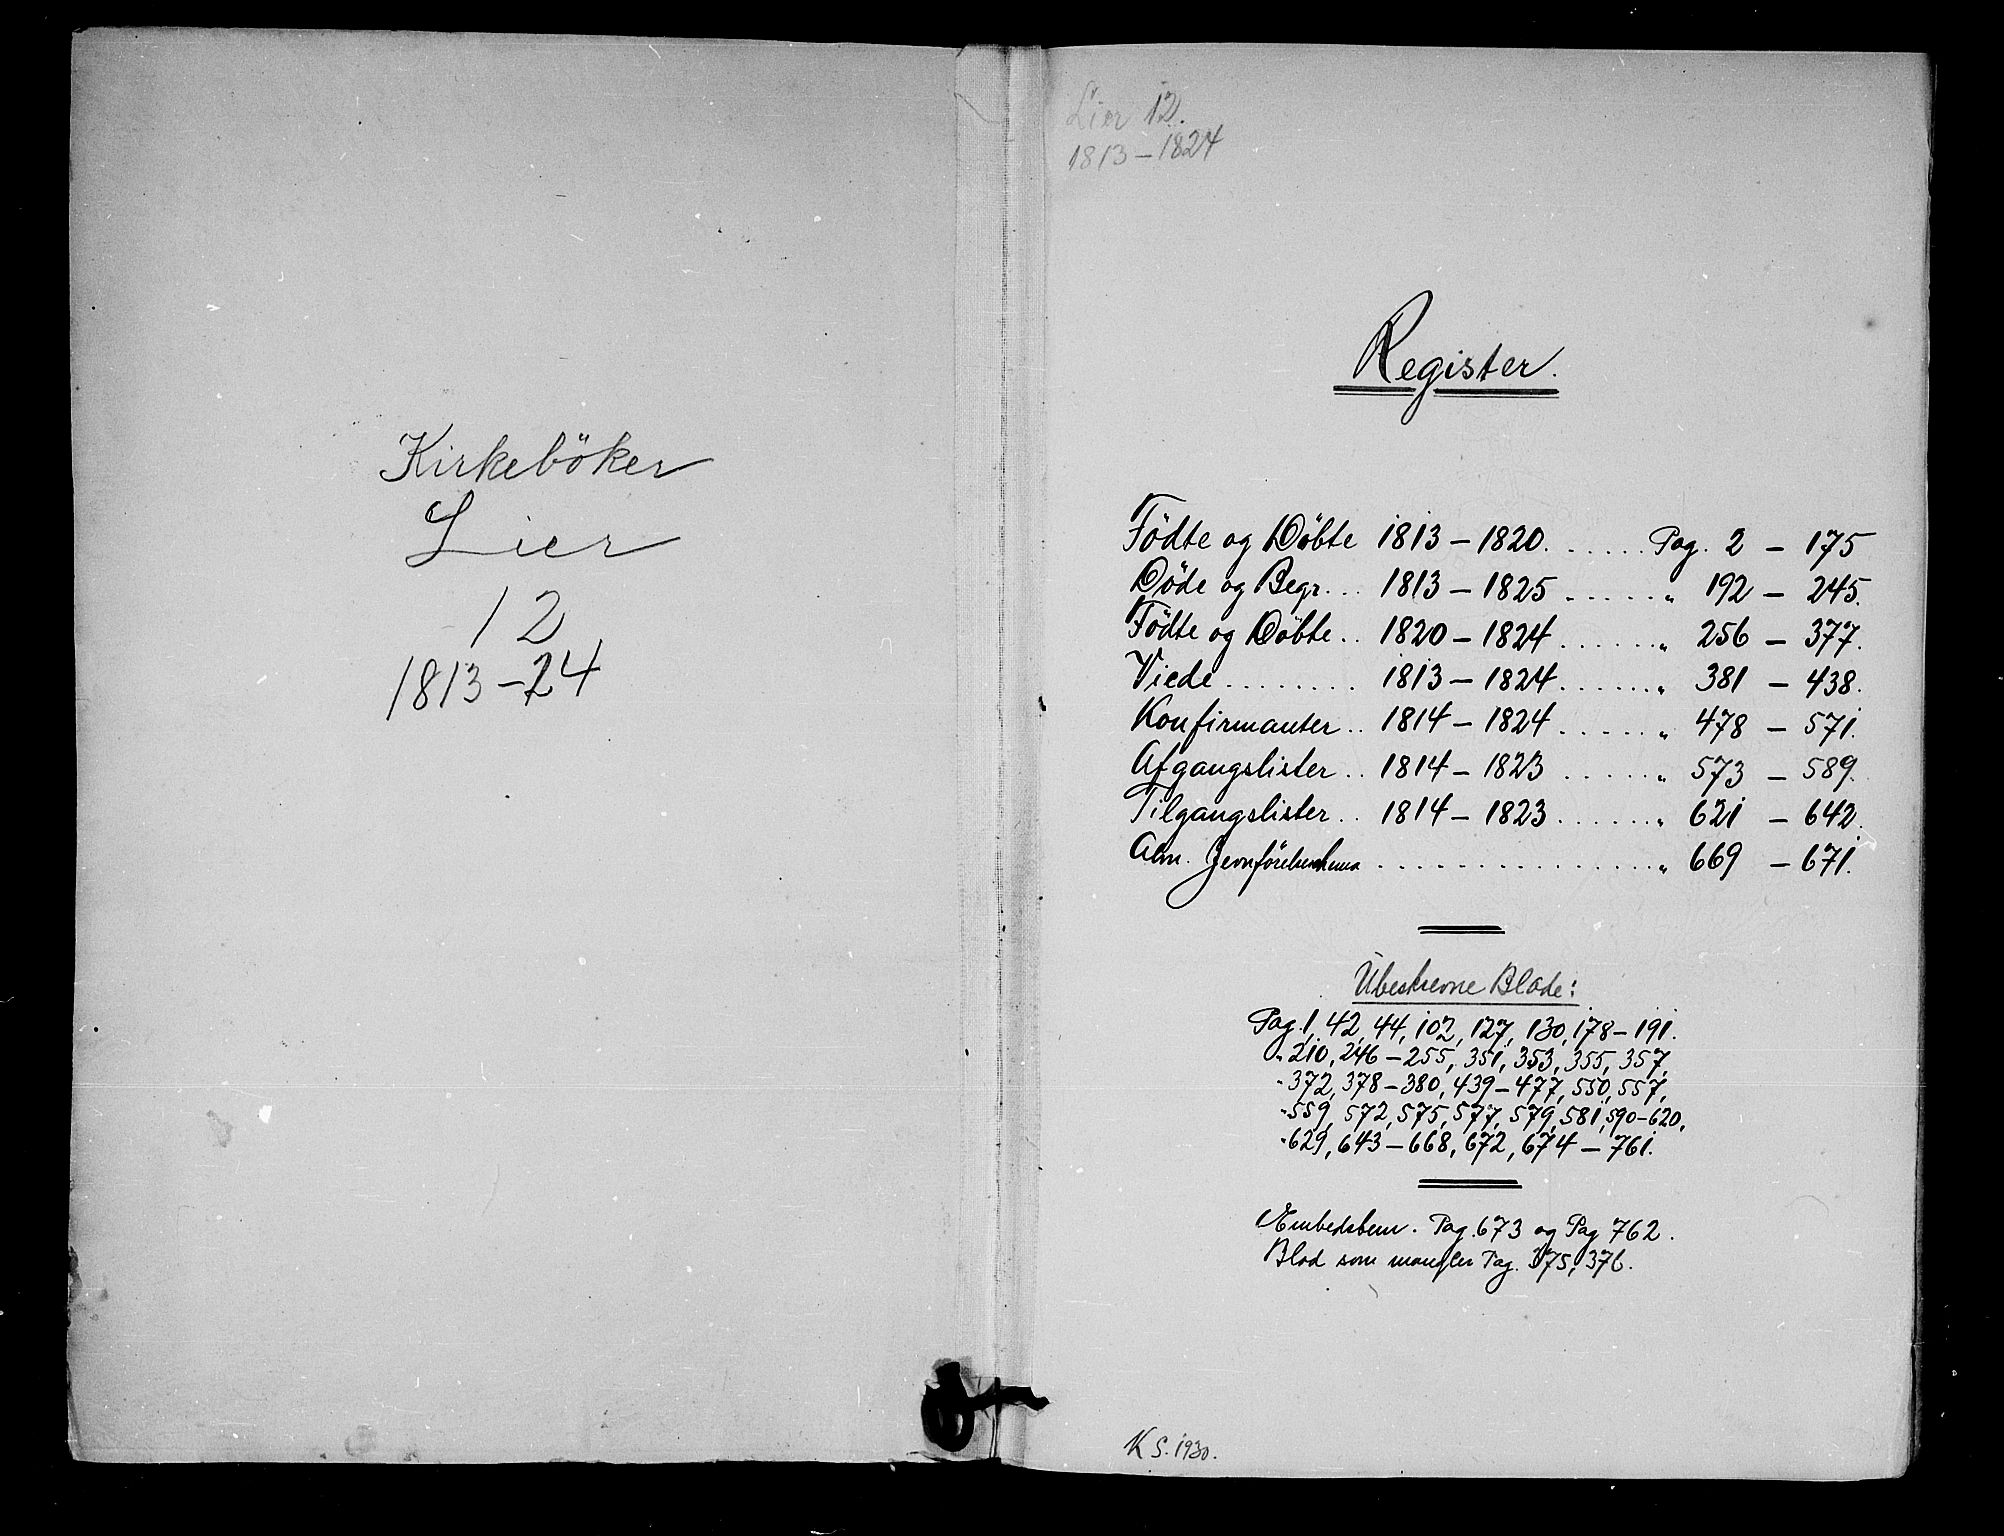 Kirkeböker
Lier
12
1813-24
Lier 12.
1813-1824
Register.
Födte og Döbte 1813 - 1820. ..... Pag. 2 - 175
Döde og Begr... 1813 - 1825 ...... " 192 - 245.
Födte og Döbte.. 1820 - 1824 ...... " 256 - 377.
Viede ........ 1813 - 1824 ...... " 381 - 438.
Konfirmanter.. 1814 - 1824 ...... " 478 - 571.
Afgangslister.. 1814 - 1823 ...... " 573 - 589.
Tilgangslister.. 1814 - 1823 ...... " 621 - 642.
Alm. Jevnförelsesskema ................ " 669 - 671.
Ubeskrevne Blade:
Pag. 1, 42, 44, 102, 127, 130, 178-191.
" 210, 246-255, 351, 353, 355, 357,
" 372, 378-380, 439-477, 550, 557,
" 559, 572, 575, 577, 579, 581, 590-620,
" 629, 643-668, 672, 674-761.
Embedsbem. Pag. 673 og Pag 762.
Blad som mangler Pag. 375, 376.
K S. 1930.